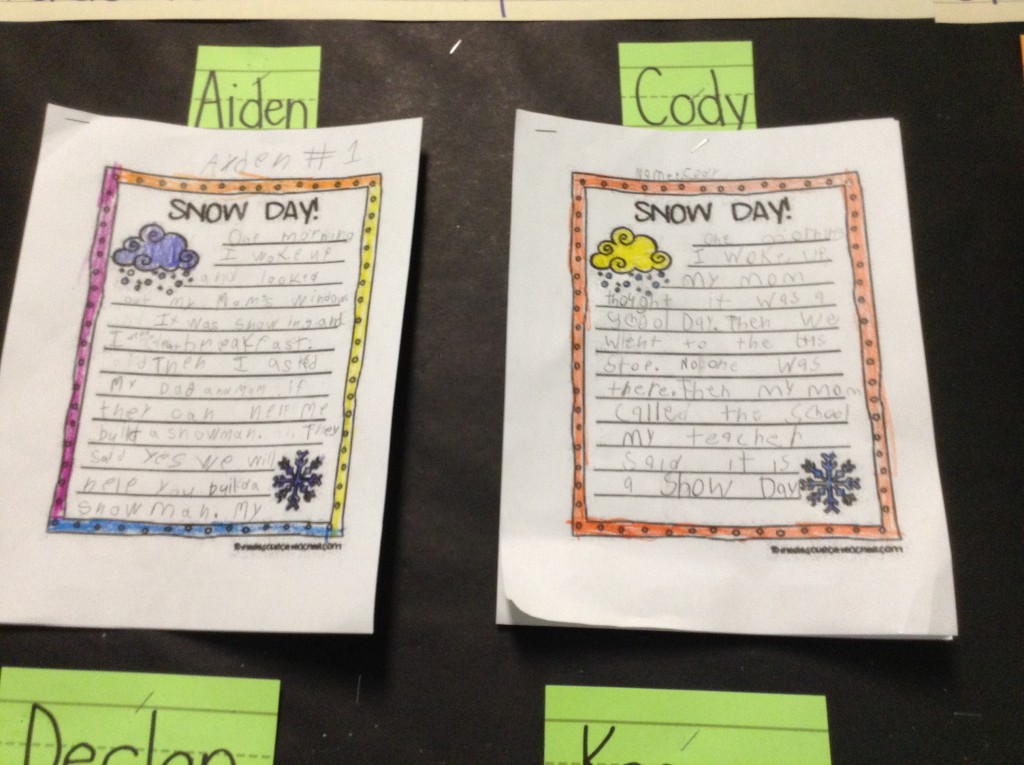 Aiden
Aiden #1
SNOW DAY!
One morning
I woke up
and looked
out my Mom's window
It was snowing and
I breakfast.
Then I asked
My Dad and Mom if
they can help me
build a snowman. They
said yes we will
help you build a
snowman. My
Cody
Name: Cody
SNOW DAY!
One morning
I woke up
my mom
thought it was a
school Day. Then We
Went to the bus
Stop. No one was
there. Then my mom
called the School
my teacher
said it is
a Snow Day
Declan
K